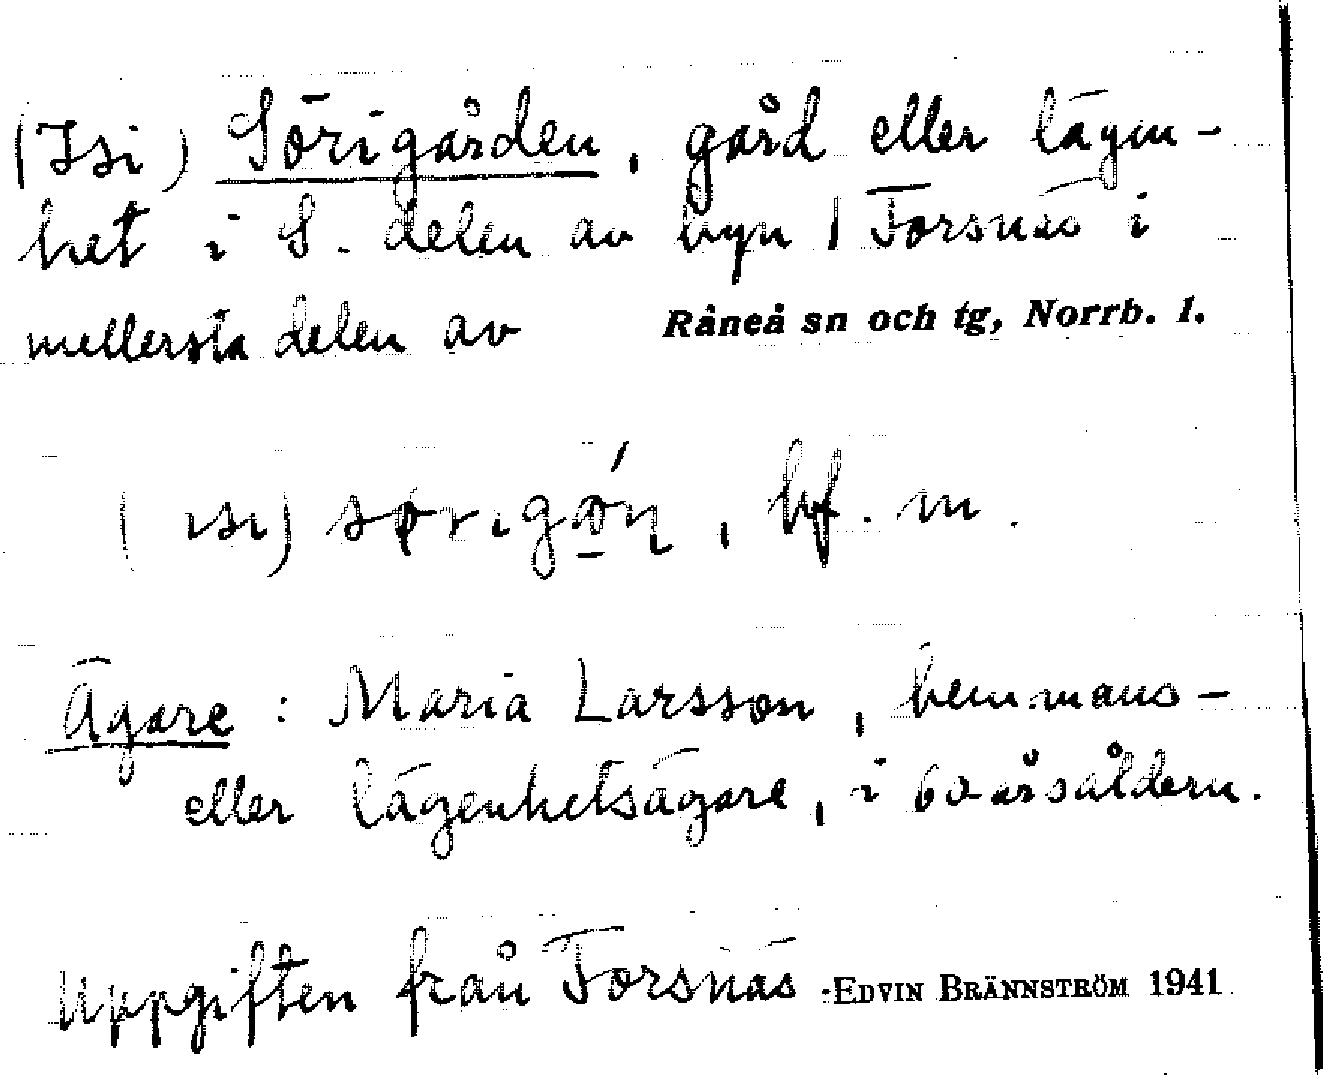 (Isi) Sörigården, gård eller lägen-
het i S. delen av byn 1 Forsnäs i
mellersta delen av Råneå sn och tg, Norrb. l.
(ısı) sørıgǫ́ɳ, bf. m.
Ägare: Maria Larsson, hemmans-
eller lägenhetsägare, i 60-årsåldern.
Uppgiften från Forsnäs. EDVIN BRÄNNSTRÖM 1941